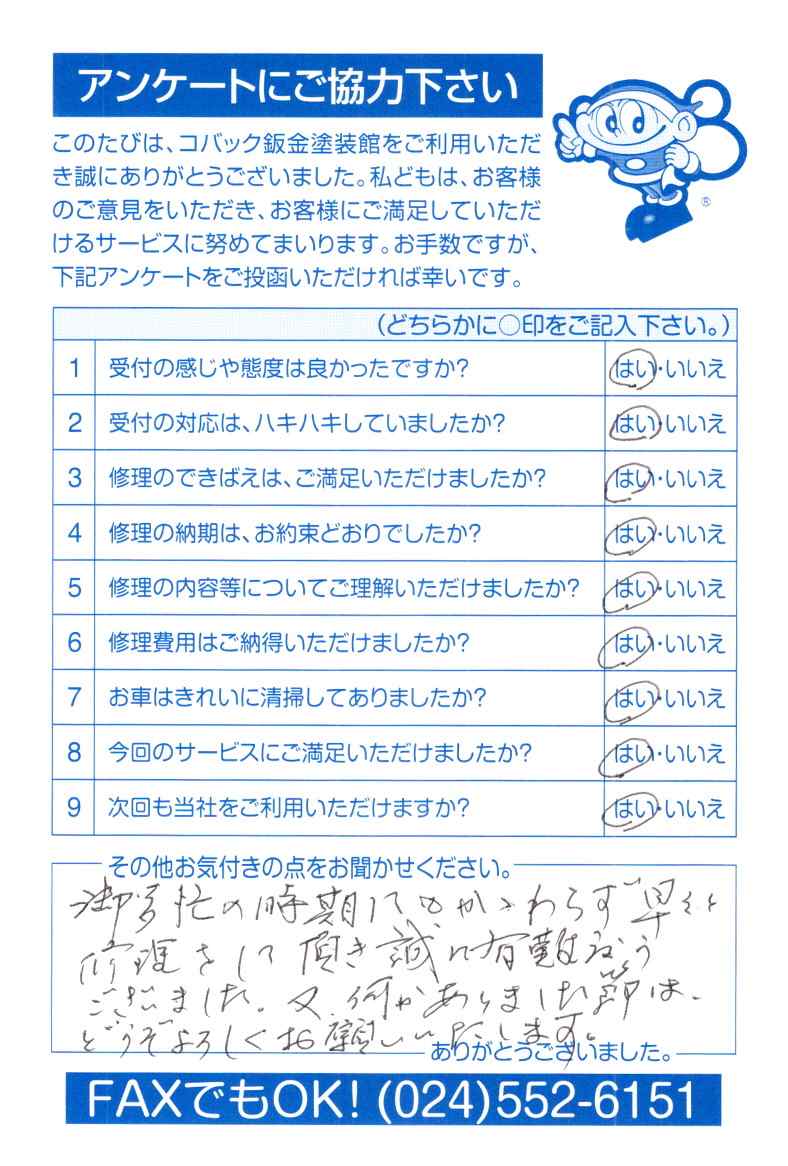 アンケートにご協力下さい
このたびは、コバック鈑金塗装館をご利用いただ
き誠にありがとうございました。私どもは、お客様
のご意見をいただき、お客様にご満足していただ
けるサービスに努めてまいります。お手数ですが、
下記アンケートをご投函いただければ幸いです。
®
(どちらかに○印をご記入下さい。)
1 受付の感じや態度は良かったですか? はい・いいえ
2 受付の対応は、ハキハキしていましたか? はい・いいえ
3 修理のできばえは、ご満足いただけましたか? はい・いいえ
4 修理の納期は、お約束どおりでしたか? はい・いいえ
5 修理の内容等についてご理解いただけましたか? はい・いいえ
6 修理費用はご納得いただけましたか? はい・いいえ
7 お車はきれいに清掃してありましたか? はい・いいえ
8 今回のサービスにご満足いただけましたか? はい・いいえ
9 次回も当社をご利用いただけますか? はい・いいえ
その他お気付きの点をお聞かせください。
御多忙の時期にもかゝわらず早々と
修理をして頂き誠に有難う
ございました。又、何かありました節は、
どうぞよろしくお願いいたします。
ありがとうございました。
FAXでもOK! (024)552-6151